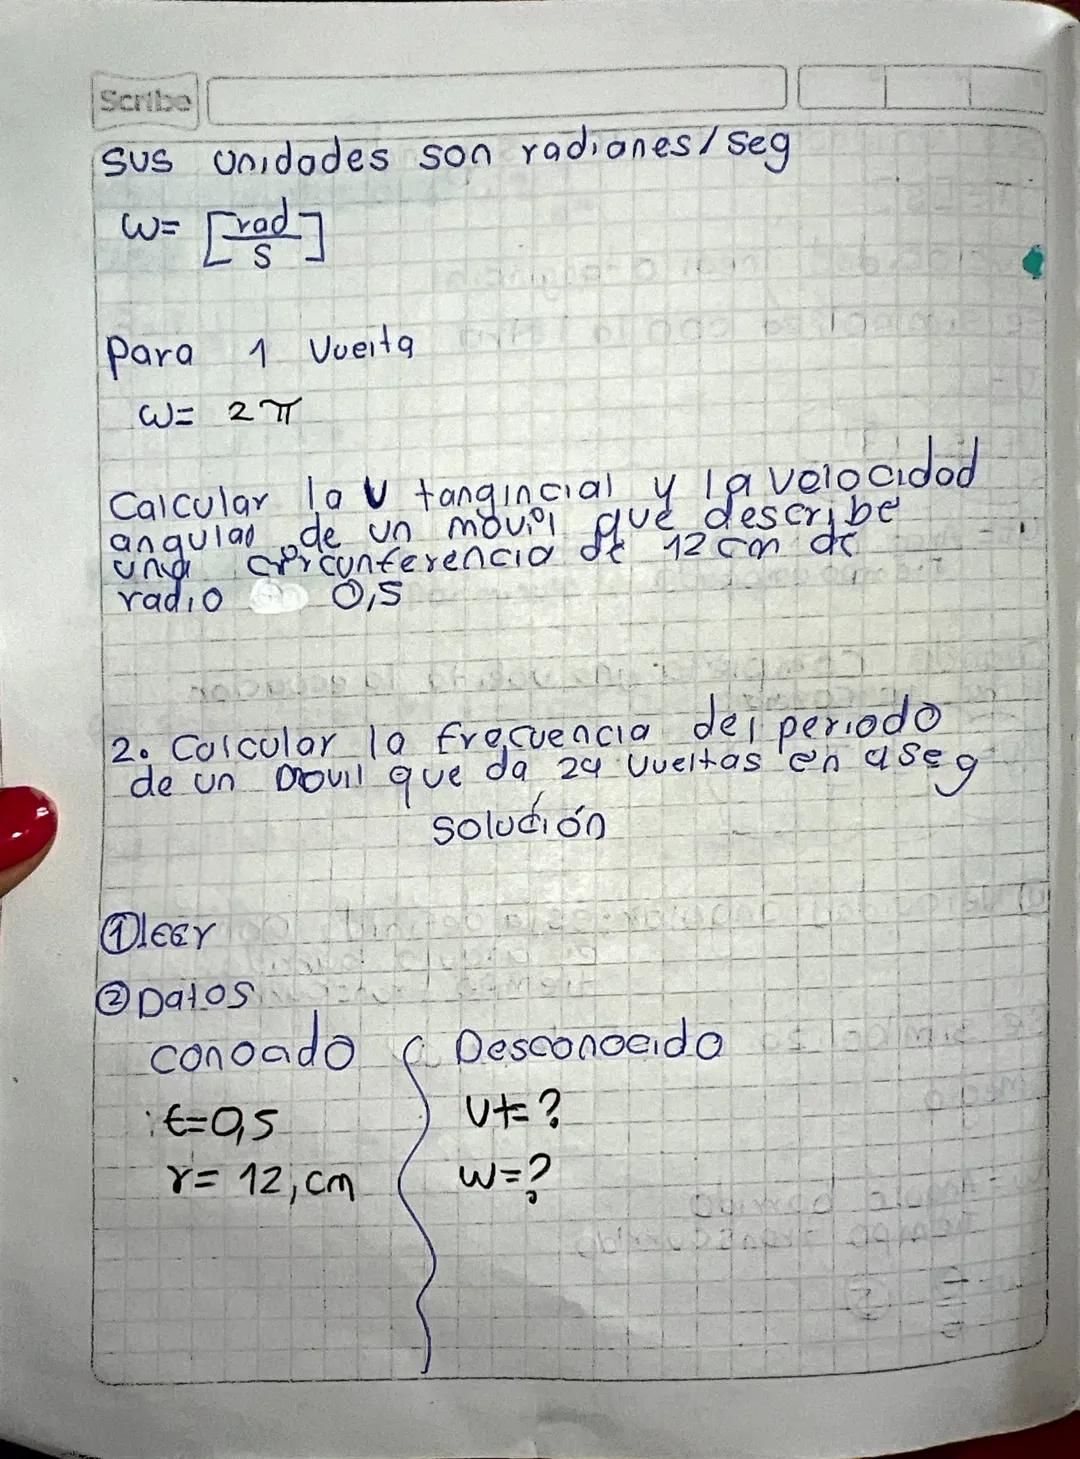 Scribe
Sus unidades son radianes/seg
W= [rad/s]
Para 1 Vuelta
W= 2π
Calcular la V tangincial y la velocidad
angular de un movil que describe
una circunferencia de 12 cm de
radio 0,5
2. Calcular la frecuencia del periodo
de un movil que da 24 vueltas en 4 seg
solución
① leer
② Datos
conocido Desconocido
t=0,5 Vt=?
r= 12, cm W=?